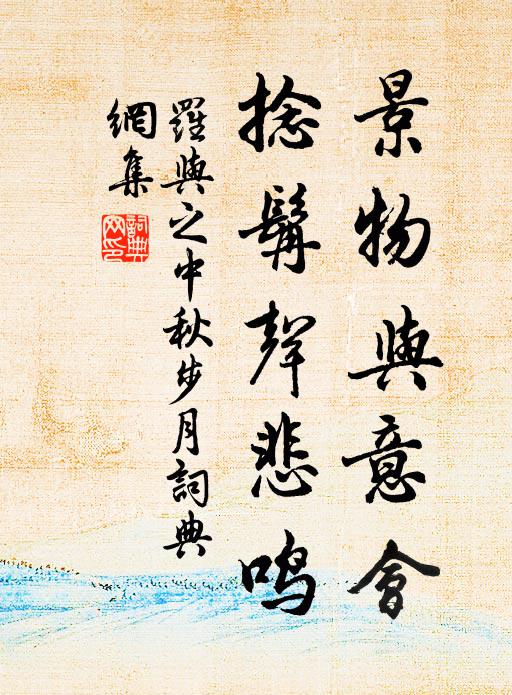 景物與意會
捻髯聲悲鳴
羅與之中秋步月詞典
網集
詞典網印